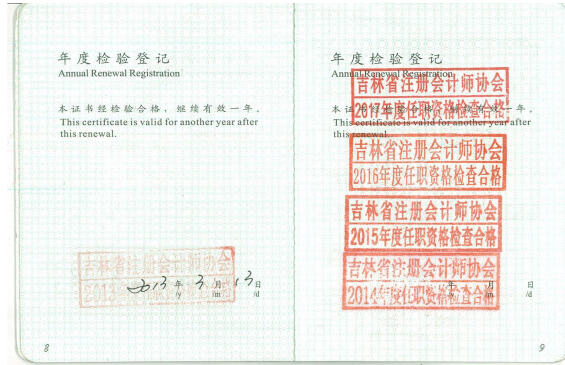 年度检验登记
Annual Renewal Registration
本证书经检验合格，继续有效一年。
This certificate is valid for another year after
this renewal.
吉林省注册会计师协会
2013年 3月 13日
/y /m /d
8
年度检验登记
Annual Renewal Registration
吉林省注册会计师协会
2017年度任职资格检查合格
本证书经检验合格，继续有效一年。
This certificate is valid for another year after
this renewal.
吉林省注册会计师协会
2016年度任职资格检查合格
吉林省注册会计师协会
2015年度任职资格检查合格
吉林省注册会计师协会
2014年度任职资格检查合格
年 月 日
/y /m /d
9